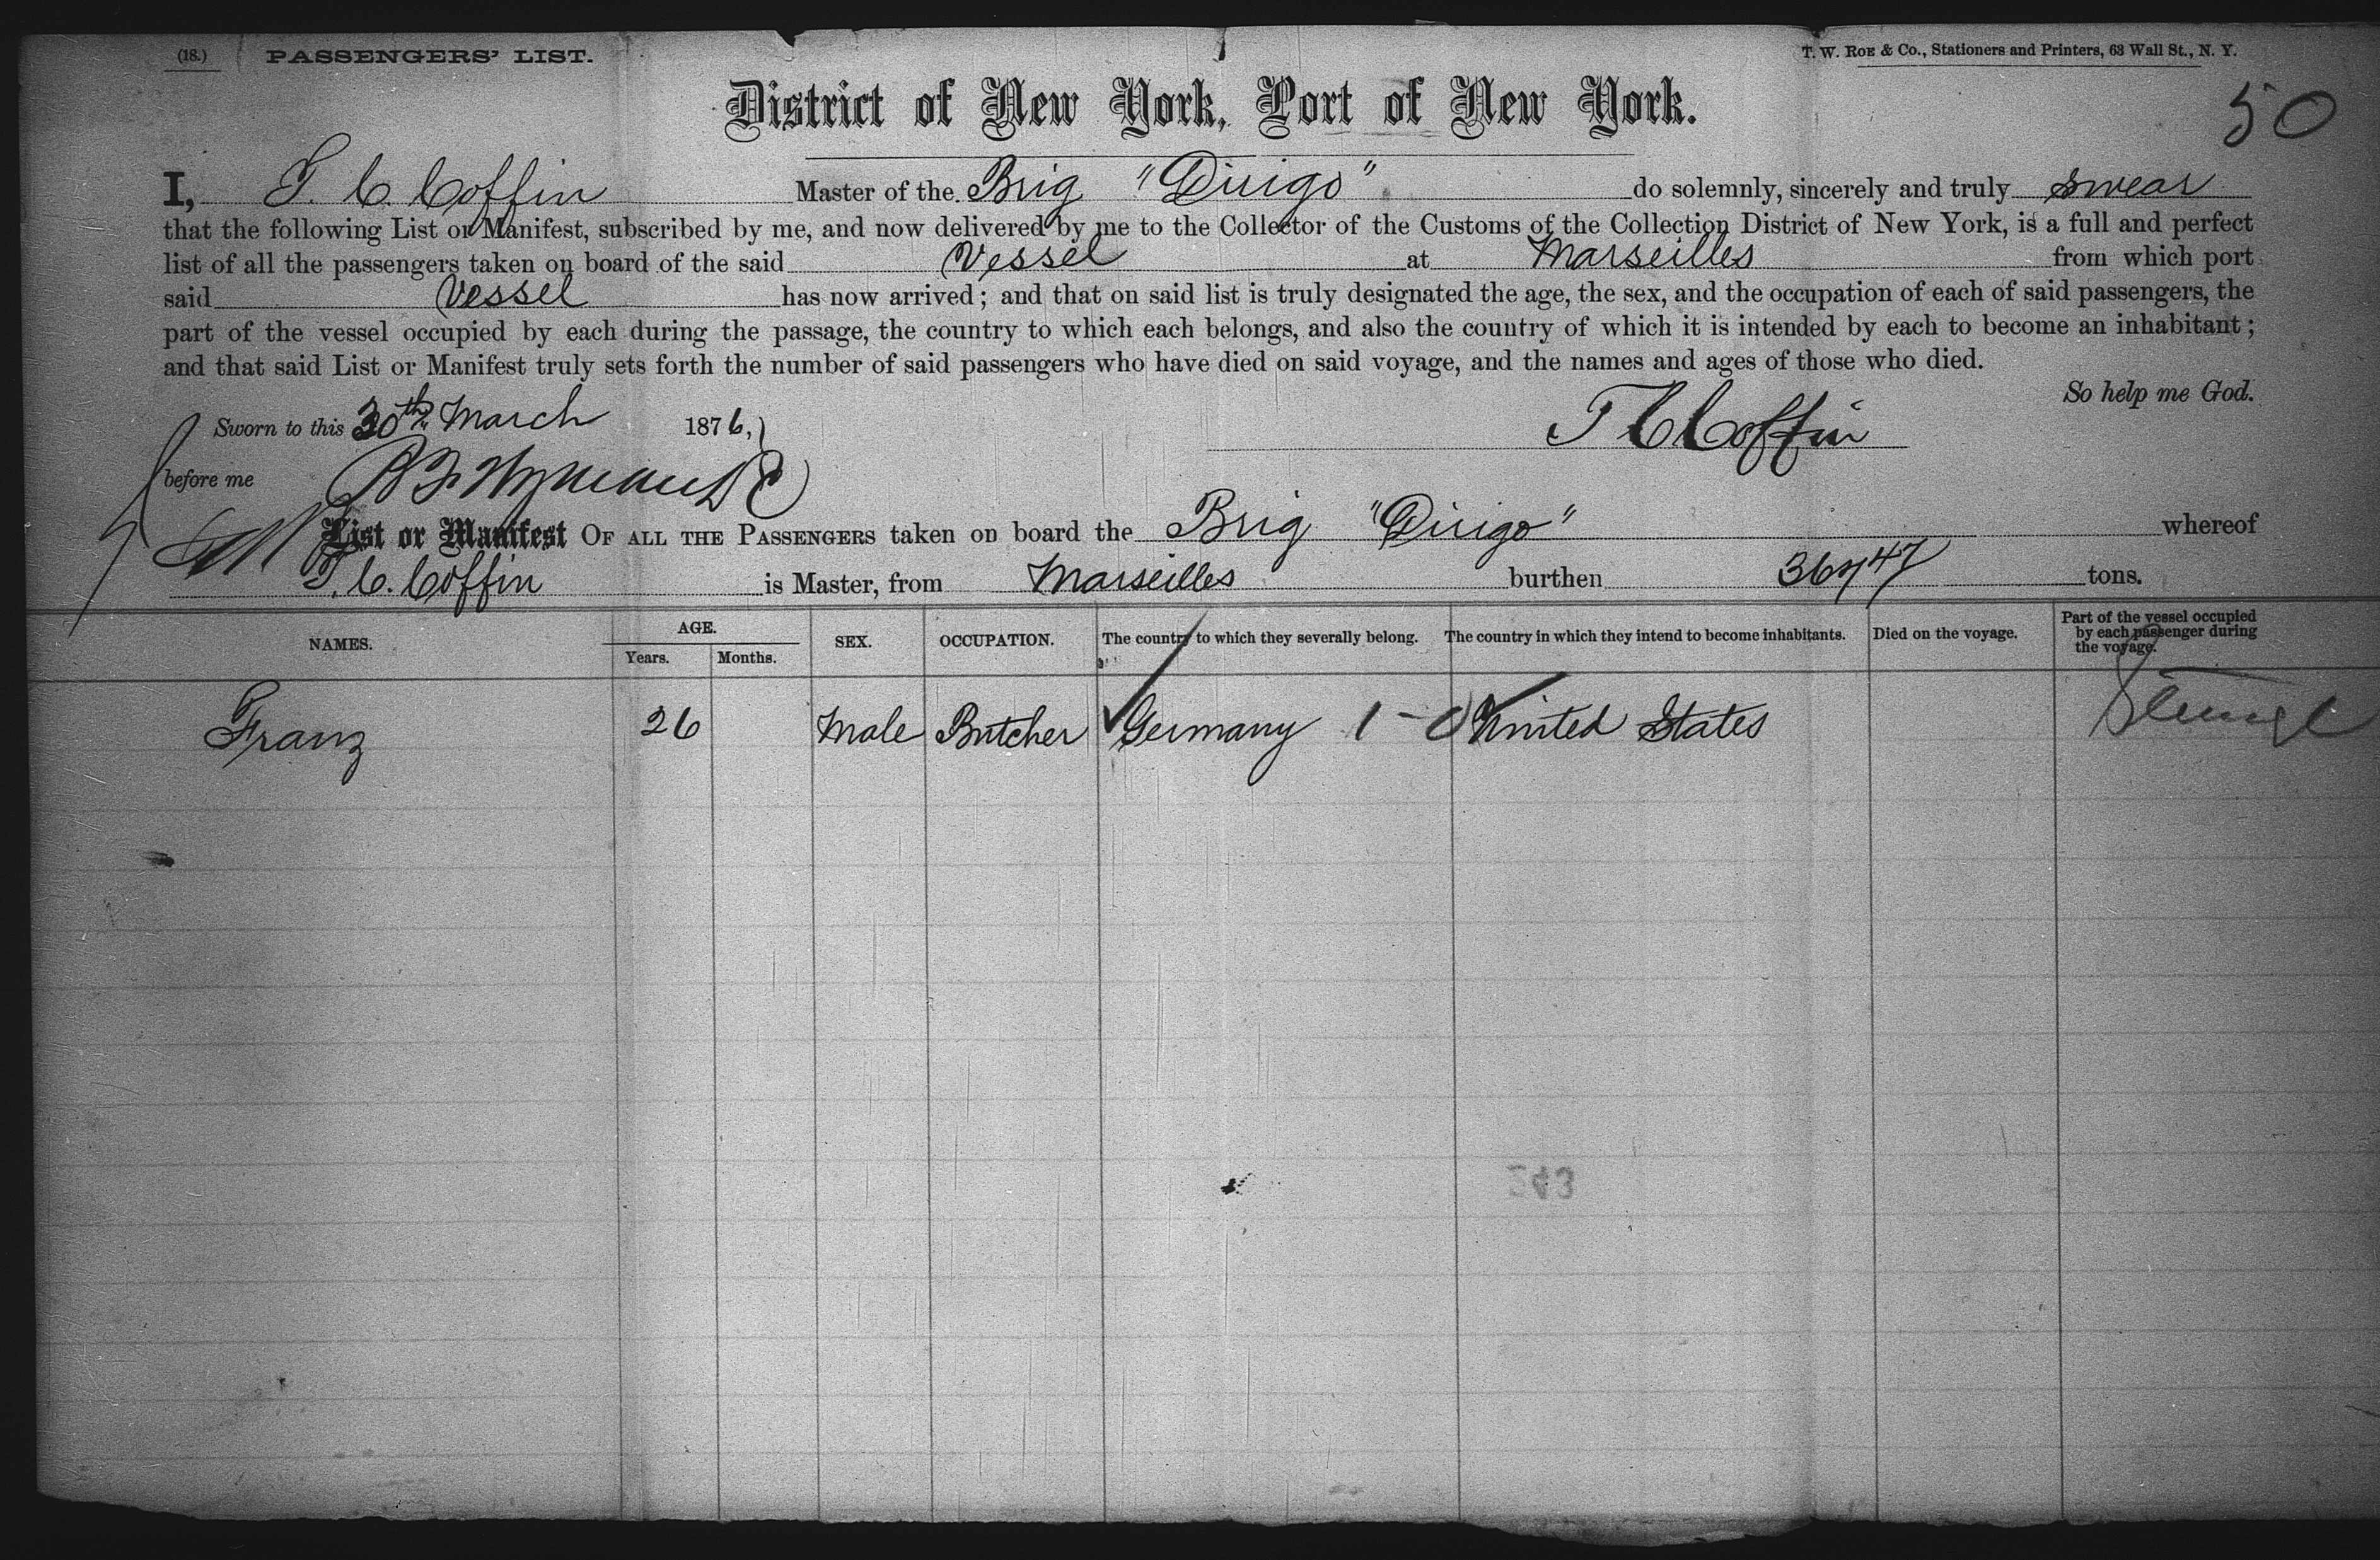 (18.) PASSENGERS' LIST.
T. W. ROE & Co., Stationers and Printers, 63 Wall St., N. Y.
50
District of New York, Port of New York.
I, T. C. Coffin Master of the Brig "Dirigo" do solemnly, sincerely and truly swear
that the following List or Manifest, subscribed by me, and now delivered by me to the Collector of the Customs of the Collection District of New York, is a full and perfect
list of all the passengers taken on board of the said Vessel at Marseilles from which port
said Vessel has now arrived; and that on said list is truly designated the age, the sex, and the occupation of each of said passengers, the
part of the vessel occupied by each during the passage, the country to which each belongs, and also the country of which it is intended by each to become an inhabitant;
and that said List or Manifest truly sets forth the number of said passengers who have died on said voyage, and the names and ages of those who died.
So help me God.
Sworn to this 30th March 1876,
T C Coffin
before me
List or Manifest OF ALL THE PASSENGERS taken on board the Brig "Dirigo" whereof
T. C. Coffin is Master, from Marseilles burthen tons.
NAMES. AGE. Years. Months. SEX. OCCUPATION. The country to which they severally belong. The country in which they intend to become inhabitants. Died on the voyage. Part of the vessel occupied by each passenger during the voyage.
Franz 26 Male Butcher Germany 1-0 United States
243